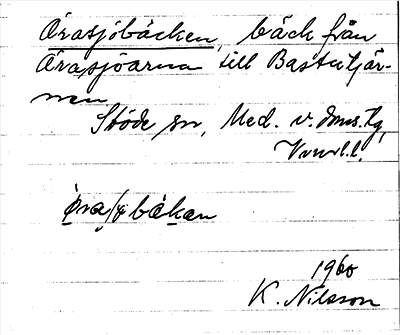 Örasjöbäcken, bäck från
Örasjöarna till Bastutjär-
nen
Stöde sn, Med. v. doms. tg,
Vnorl.l.
öra∫ƒöbäkan
1960
K. Nilsson